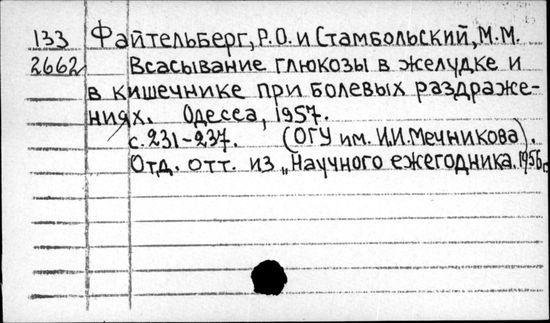 133 Файтельберг, Р.О. и Стамбольский, М.М.
2662 Всасывание глюкозы в желудке и
в кишечнике при болевых раздраже-
ниях. Одесса, 1957.
с. 231-237. (ОГУ им. И.И. Мечникова).
Отд. отт. из „Научного ежегодника. 1956 г.